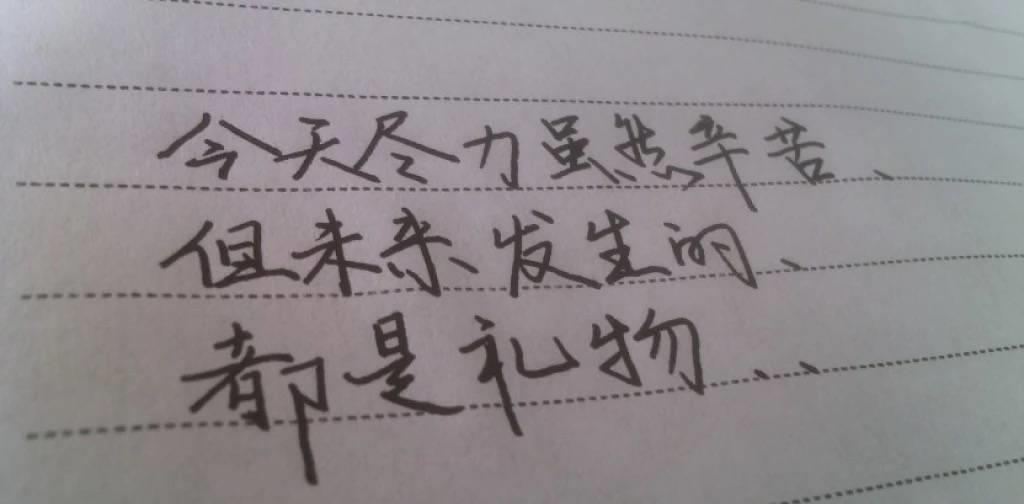 今天尽力虽然辛苦、
但未来发生的、
都是礼物、、